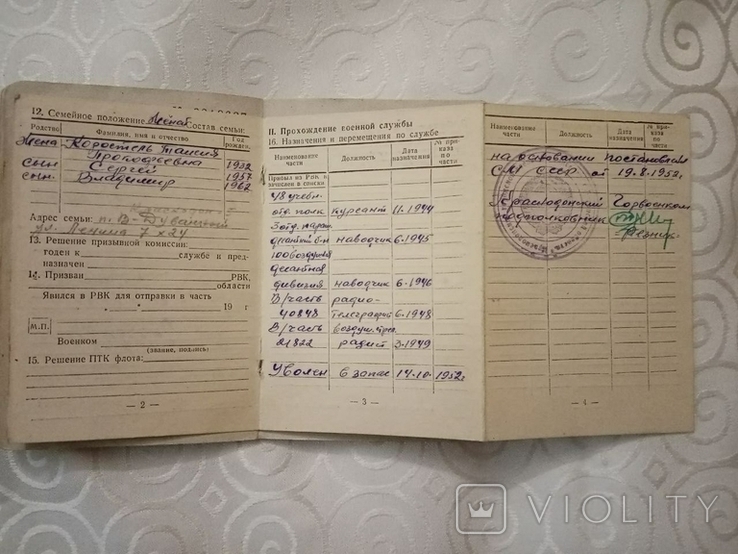 12. Семейное положение Женат Состав семьи:
Родство
Фамилия, имя и отчество
Год рожден.
жена Коростель Таисия
Прокофьевна 1932
сын Сергей 1957
сын. Владимир 1962
Адрес семьи: п. В-Дуванный
ул. Ленина 7 х 24
13. Решение призывной комиссии:
годен к службе и пред-
назначен
14. Призван РВК,
области
Явился в РВК для отправки в часть
19 г
М.П.
Военком
(звание, подпись)
15. Решение ПТК флота:
— 2 —
II. Прохождение военной службы
16. Назначения и перемещения по службе
Наименование части
Должность
Дата назначения
№ при-каза по части
Прибыл из РВК и
зачислен в списки
48 учебн.
отд. полк курсант 11.1944
десантн наводчик 6.1945
100 воздушн
десантная
дивизия наводчик 6.1946
В/часть радио-
40848 телеграфист 6.1948
В/часть
21822 радист 3.1949
Уволен в запас 14.10. 1952г
— 3 —
Наименование части
Должность
Дата назначения
№ при-каза по части
на основании постановлен
СМ СССР от 19.8.1952г.
Краснодонский Горвоенком
подполковник
— 4 —
VIOLITY